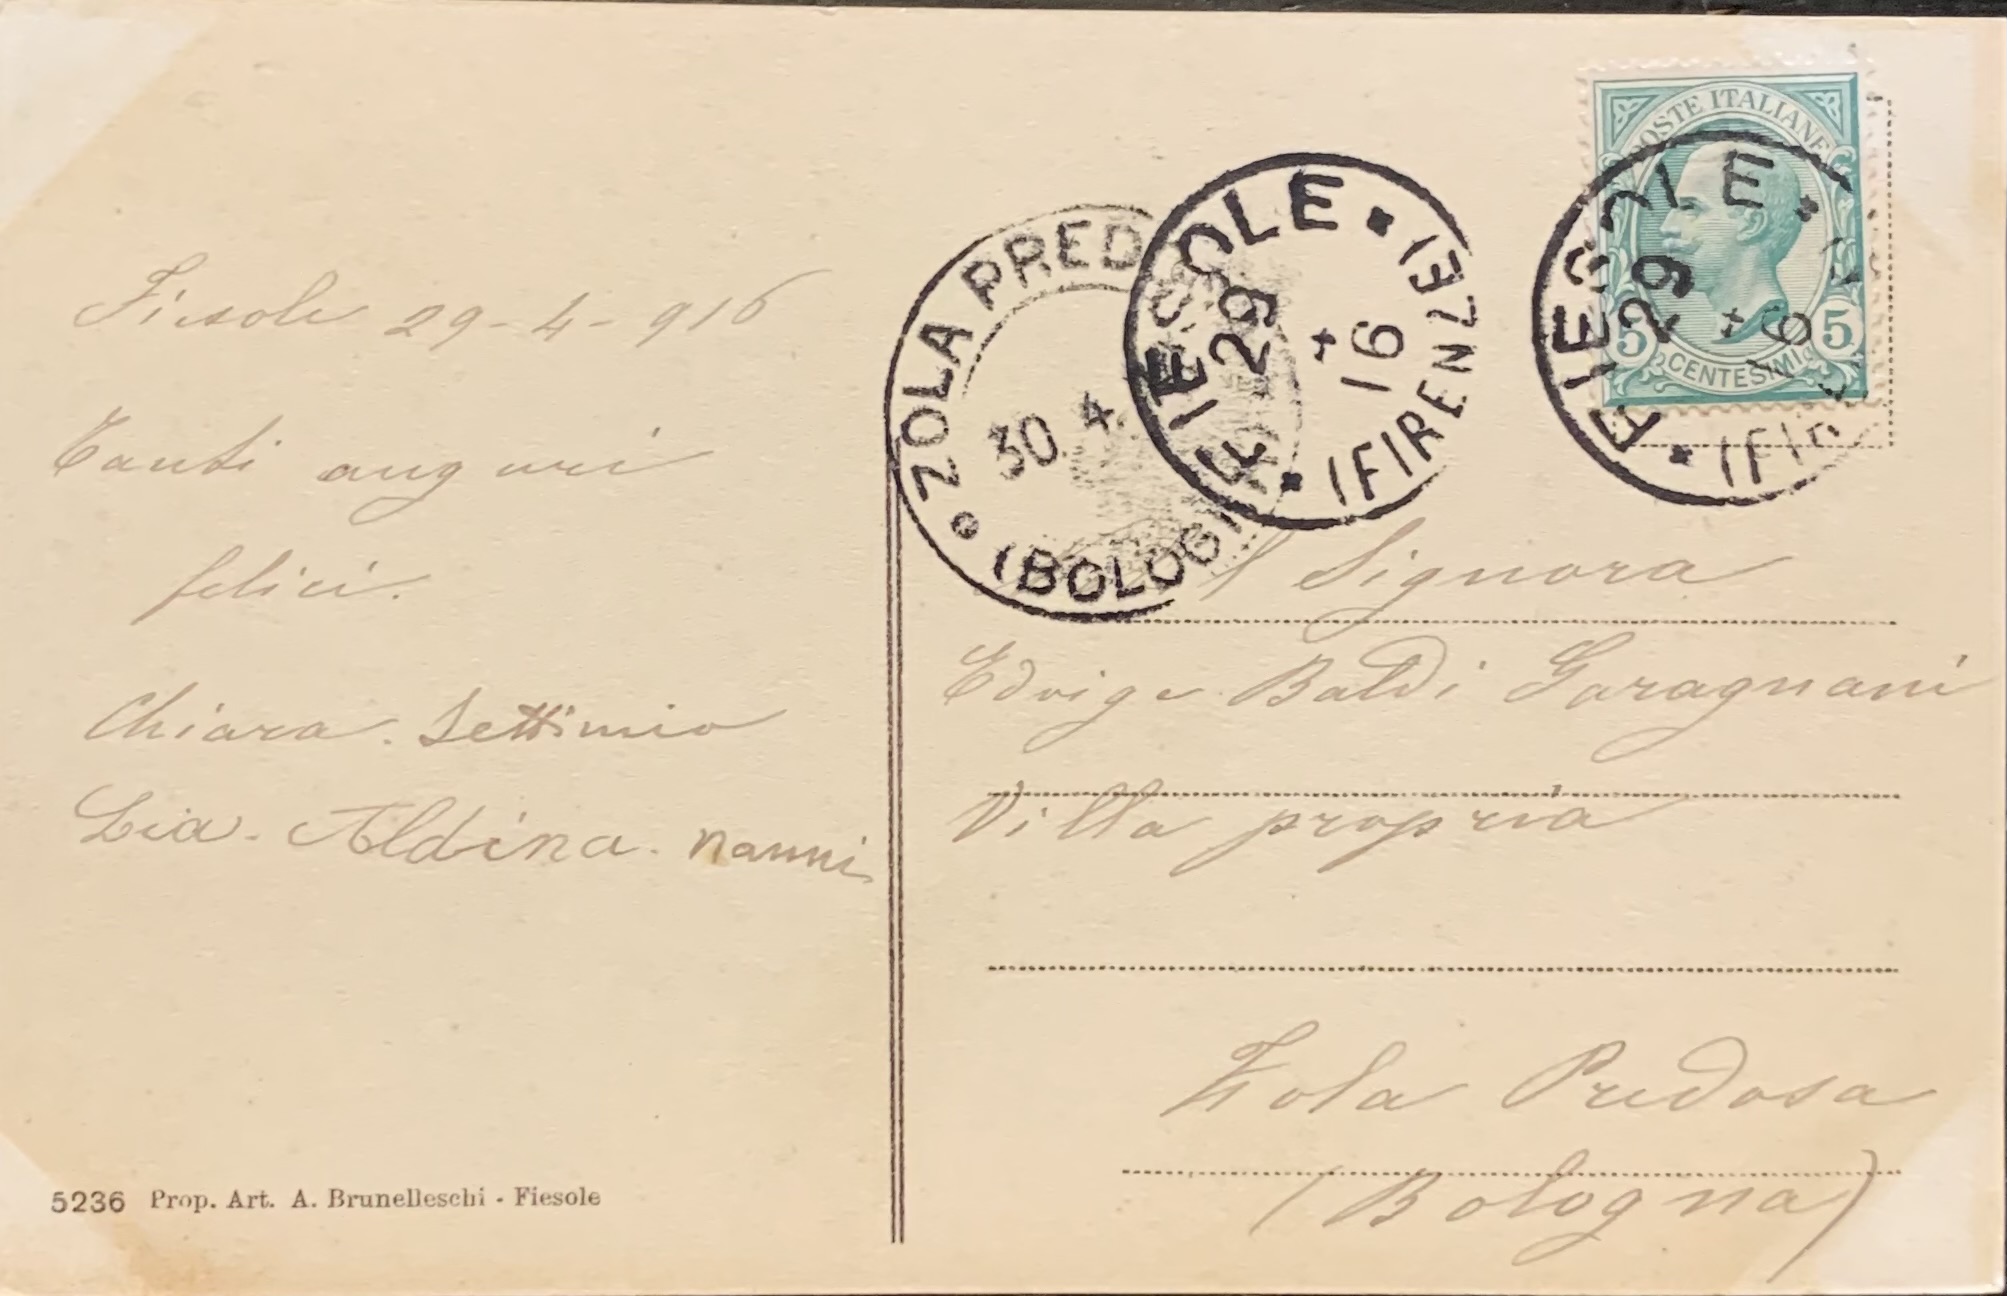 Fiesole 29-4-916
Tanti auguri
felici.
Chiara. Settimio
Lia. Aldina. Nanni
5236 Prop. Art. A. Brunelleschi - Fiesole
ZOLA PRED
30. 4.
(BOLOGN
FIESOLE
29
4
16
(FIRENZE)
POSTE ITALIANE
5 CENTESIMI 5
FIESOLE
29
4
16
(FIRE
Signora
Edvige Baldi Garagnani
Villa propria
Zola Predosa
(Bologna)